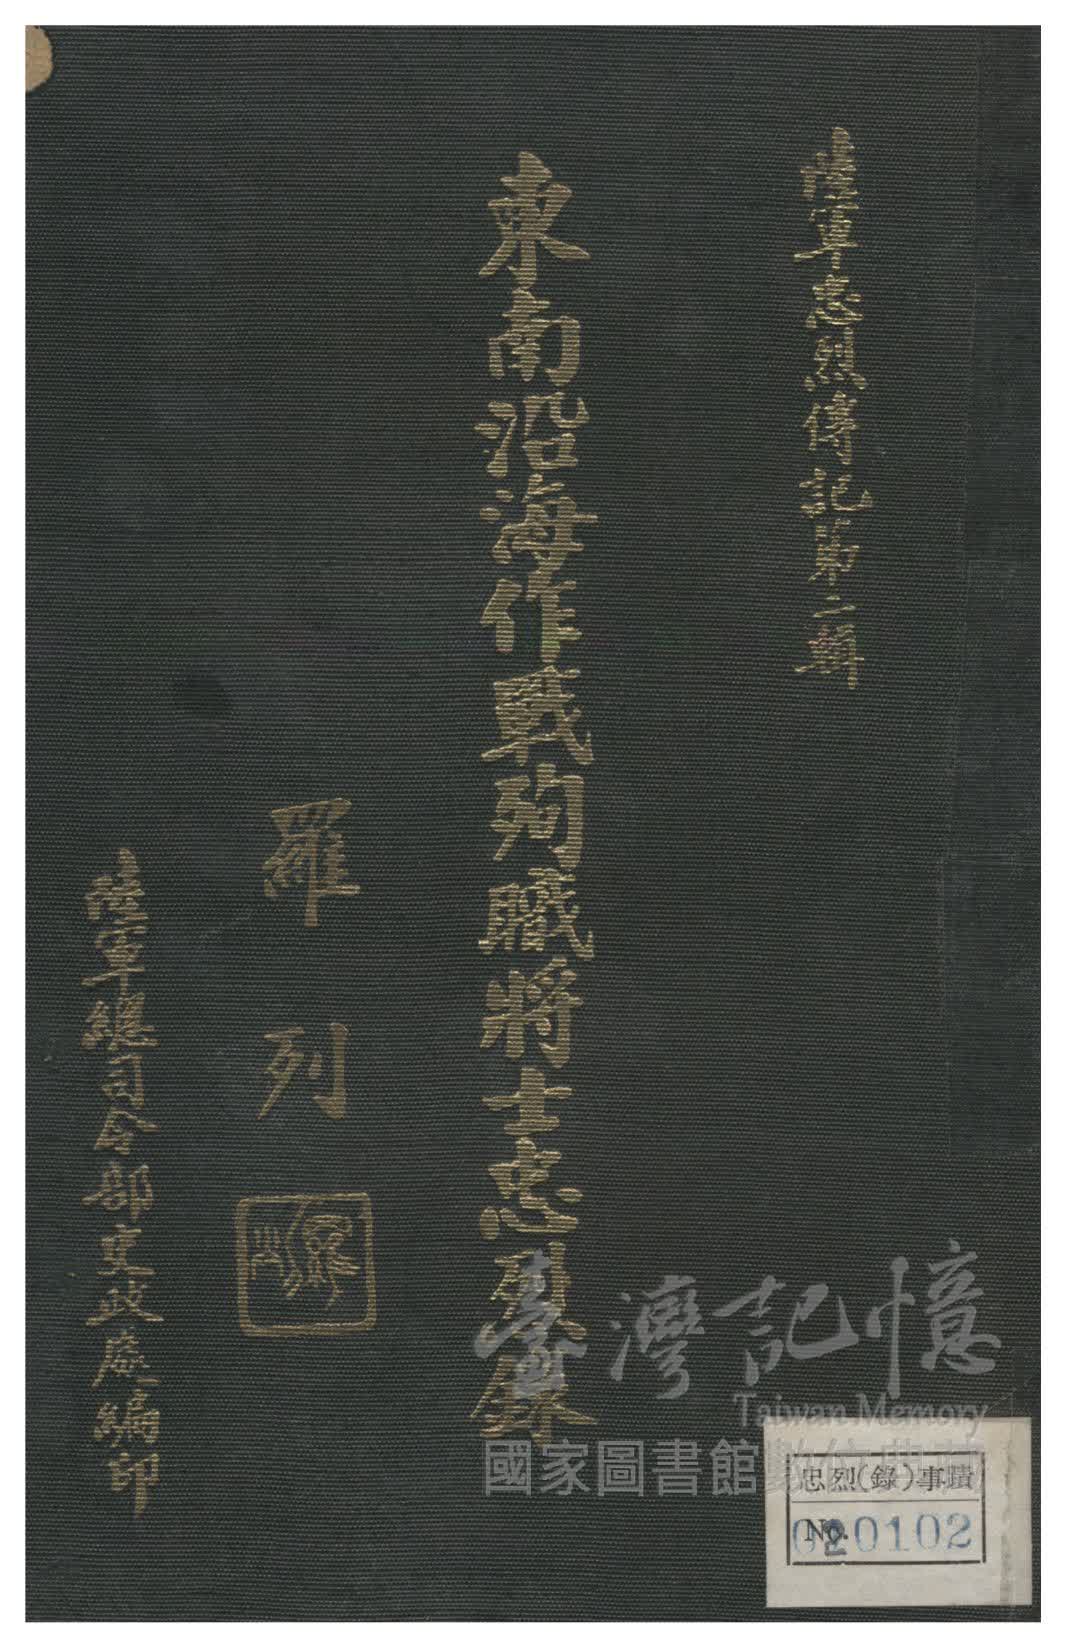 陸軍忠烈傳記第二輯
東南沿海作戰殉職將士忠烈錄
羅列
陸軍總司令部史政處編印
臺灣記憶
Taiwan Memory
國家圖書館數位典藏
忠烈(錄)事蹟
No. 020102